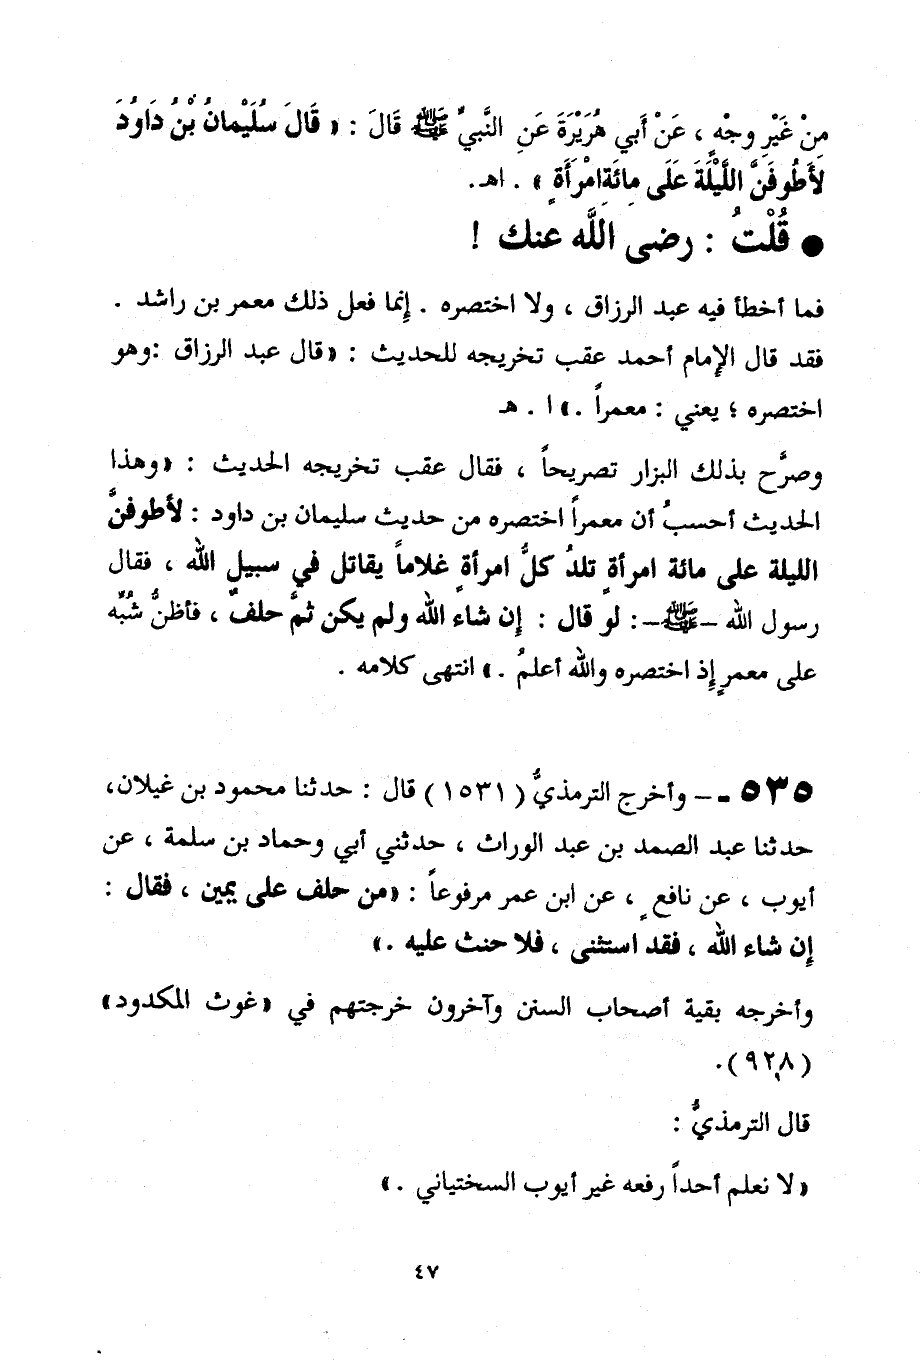 مِنْ غَيْرِ وجْهٍ ، عَنْ أَبي هُرَيْرَةَ عَنِ النَّبيِّ ﷺ قَالَ : « قَالَ سُلَيْمانُ بْنُ دَاوُدَ
لَأَطُوفَنَّ اللَّيْلَةَ عَلَى مِائَةِ امْرَأَةٍ » . اهـ.
● قُلْتُ : رضى اللَّه عنك !
فما أخطأ فيه عبد الرزاق ، ولا اختصره . إنما فعل ذلك معمر بن راشد .
فقد قال الإمام أحمد عقب تخريجه للحديث : «قال عبد الرزاق :وهو
اختصره ؛ يعني : معمراً .» ا . هـ
وصرَّح بذلك البزار تصريحاً ، فقال عقب تخريجه الحديث : «وهذا
الحديث أحسبُ أن معمراً اختصره من حديث سليمان بن داود : لأطوفنَّ
الليلة على مائة امرأةٍ تلدُ كلُّ امرأةٍ غلاماً يقاتل في سبيل الله ، فقال
رسول الله –ﷺ–: لو قال : إن شاء الله ولم يكن ثمَّ حلفٌ ، فأظنُّ شُبِّه
على معمرٍ إذ اختصره والله أعلمُ .» انتهى كلامه .
٥٣٥ - – وأخرج الترمذيُّ (١٥٣١) قال : حدثنا محمود بن غيلان،
حدثنا عبد الصمد بن عبد الوراث ، حدثني أبي وحماد بن سلمة ، عن
أيوب ، عن نافعٍ ، عن ابن عمر مرفوعاً : «من حلف على يمين ، فقال :
إن شاء الله ، فقد استثنى ، فلا حنث عليه .»
وأخرجه بقية أصحاب السنن وآخرون خرجتهم في «غوث المكدود»
(٩٢٨).
قال الترمذيُّ :
«لا نعلم أحداً رفعه غير أيوب السختياني .»
٤٧